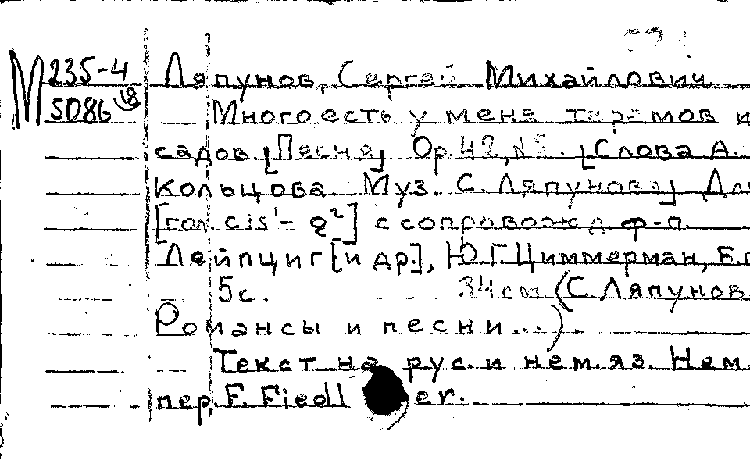 М 235-4 Ляпунов, Сергей Михайлович
5086 Много есть у меня теремов и
садов. [Песня] Ор. 42, №. [Слова А.
Кольцова. Муз. С. Ляпунова] Дл
[гол. cis¹ - g²] с сопровожд. ф-п.
Лейпциг [и др.], Ю.Г. Циммерман, Б.г
5с. 34см (С. Ляпунов
Романсы и песни...)
Текст на рус. и нем. яз. Нем.
пер. F. Fiedler.